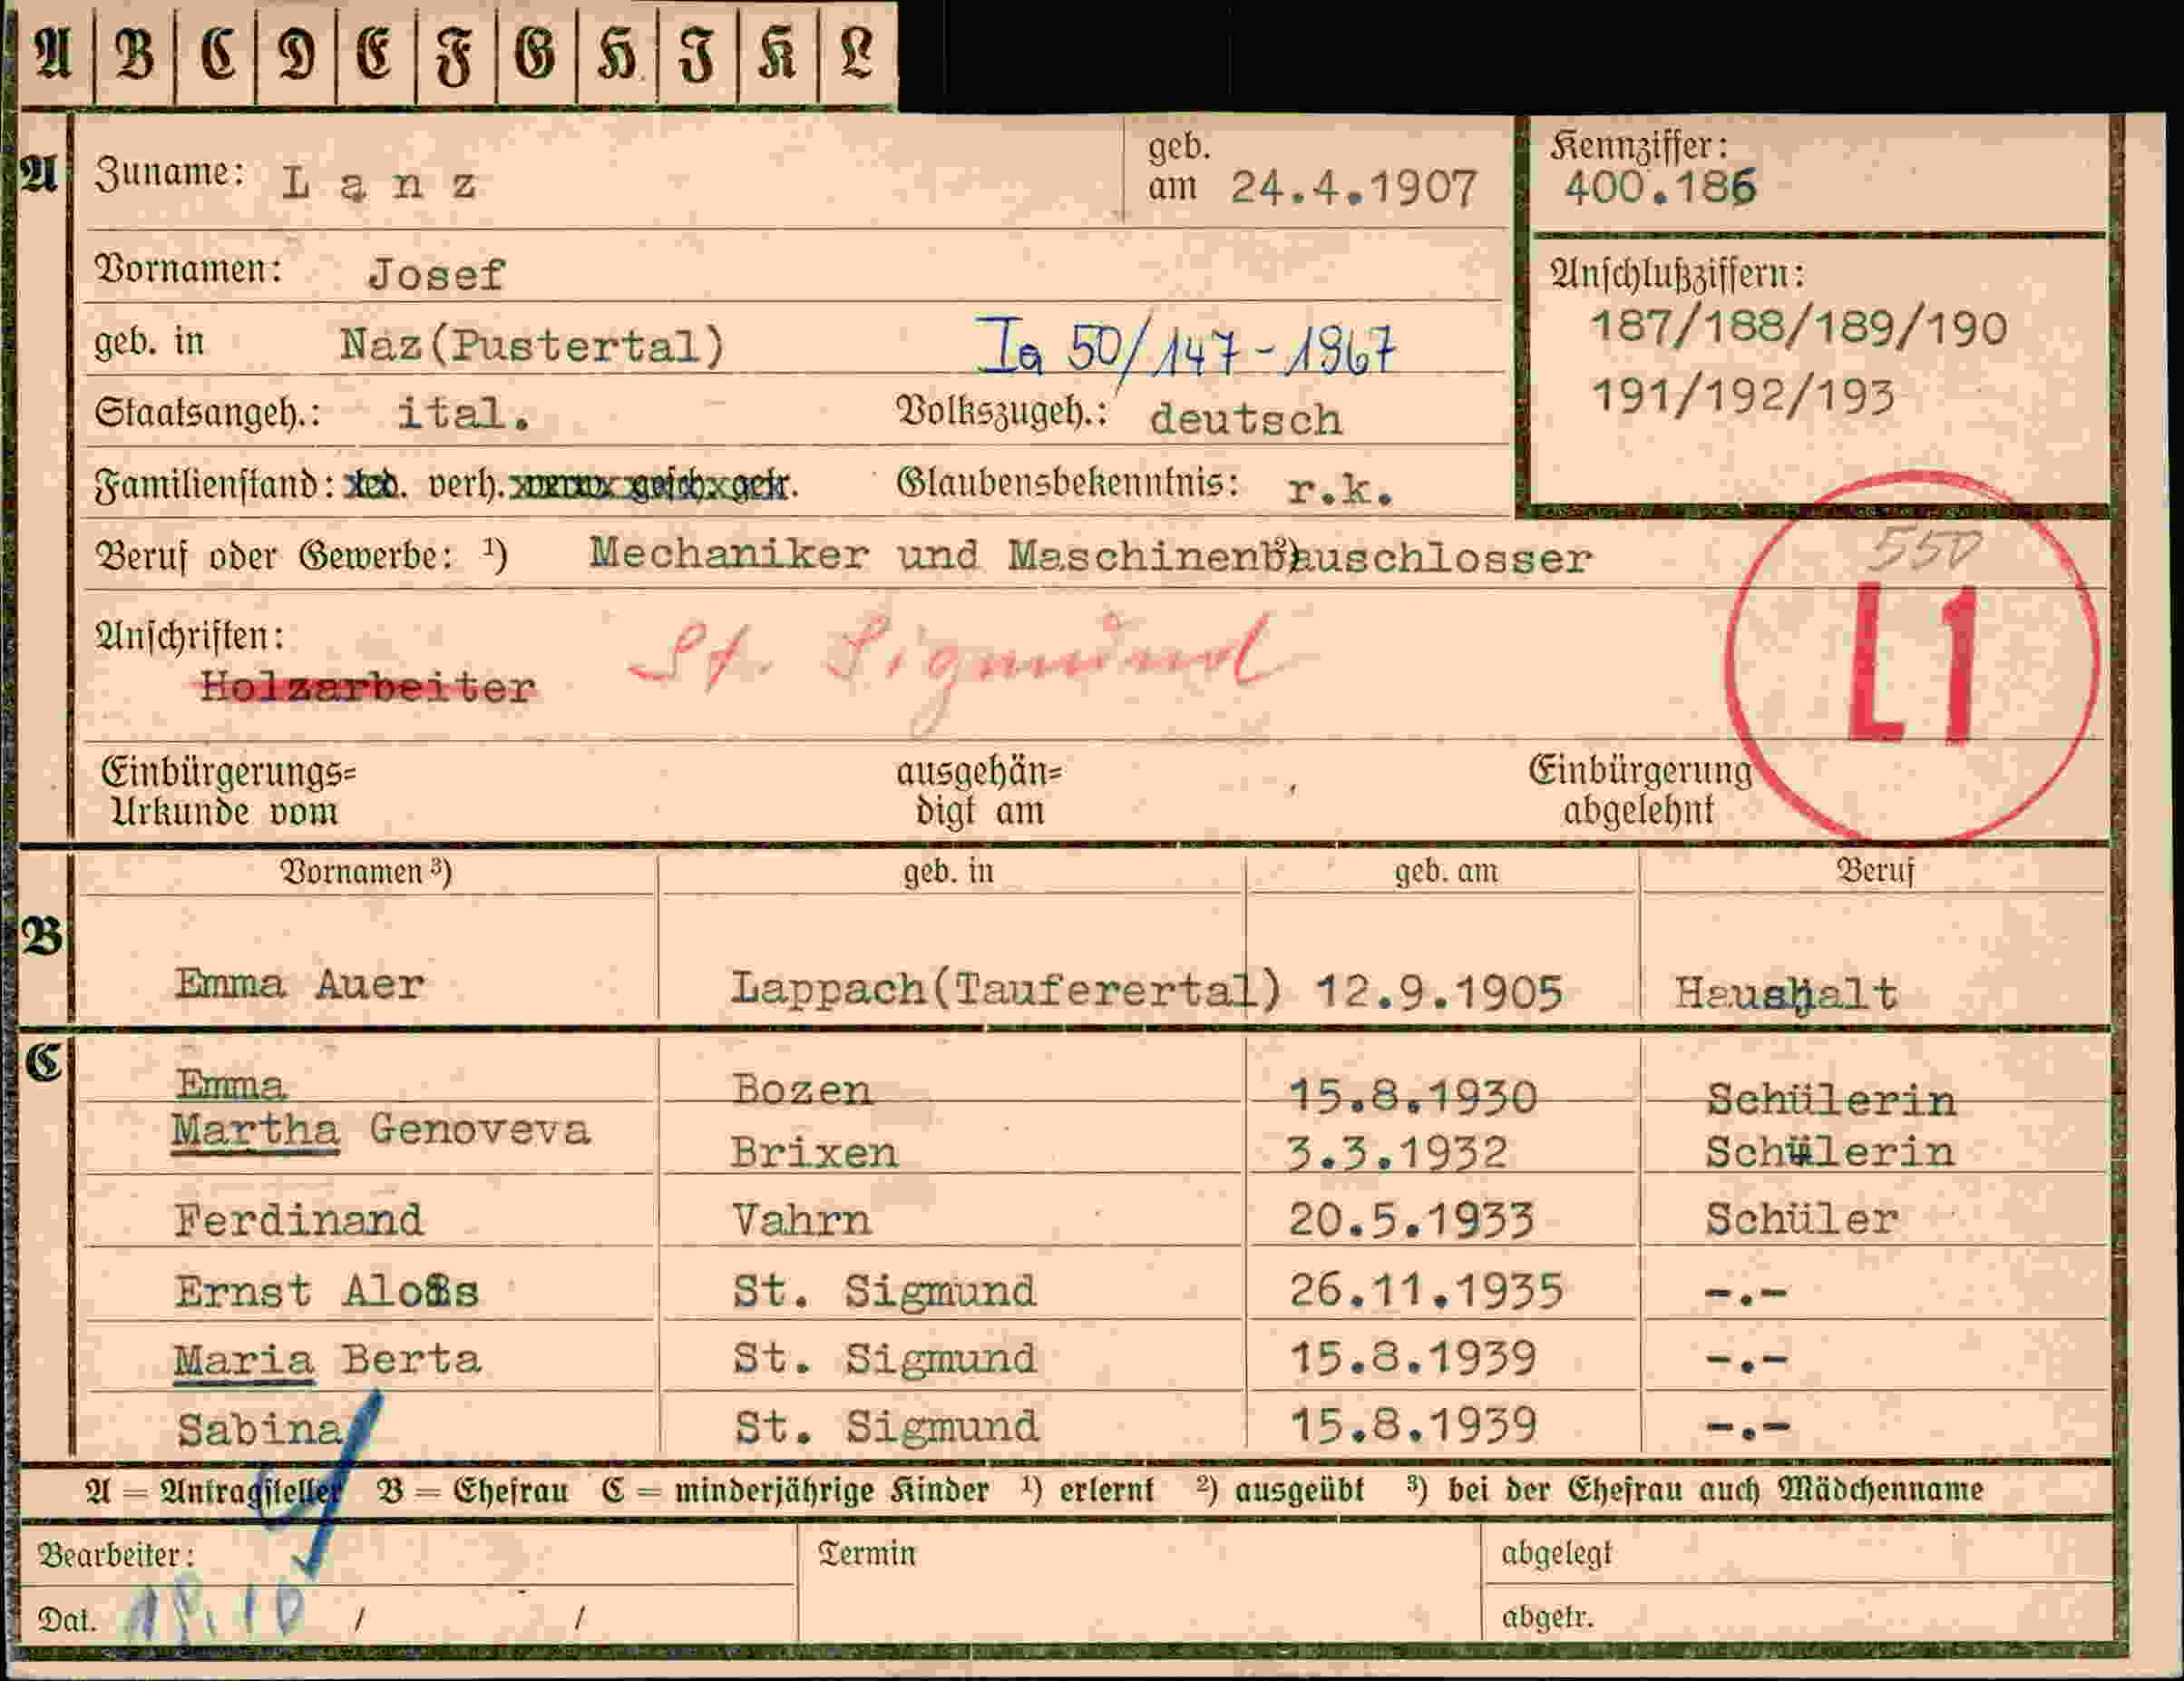 A B C D E F G H I K L
A
Zuname: Lanz
geb. am 24.4.1907
Kennziffer:
400.186
Vornamen: Josef
Anschlußziffern:
187/188/189/190
191/192/193
geb. in Naz(Pustertal) Ia 50/147-1967
Staatsangeh.: ital. Volkszugeh.: deutsch
Familienstand: led. verh. verw. gesch. getr. Glaubensbekenntnis: r.k.
Beruf oder Gewerbe: ¹) Mechaniker und Maschinenbauschlosser
550
L1
Anschriften:
St. Sigmund
Holzarbeiter
Einbürgerungs=
Urkunde vom
ausgehän=
digt am
Einbürgerung
abgelehnt
Vornamen ³) geb. in geb. am Beruf
B
Emma Auer Lappach(Tauferertal) 12.9.1905 Haushalt
C
Emma Bozen 15.8.1930 Schülerin
Martha Genoveva Brixen 3.3.1932 Schülerin
Ferdinand Vahrn 20.5.1933 Schüler
Ernst Alois St. Sigmund 26.11.1935 -.-
Maria Berta St. Sigmund 15.8.1939 -.-
Sabina St. Sigmund 15.8.1939 -.-
A = Antragsteller B = Ehefrau C = minderjährige Kinder ¹) erlernt ²) ausgeübt ³) bei der Ehefrau auch Mädchenname
Bearbeiter: Termin abgelegt
Dat. 18.10 / / abgetr.